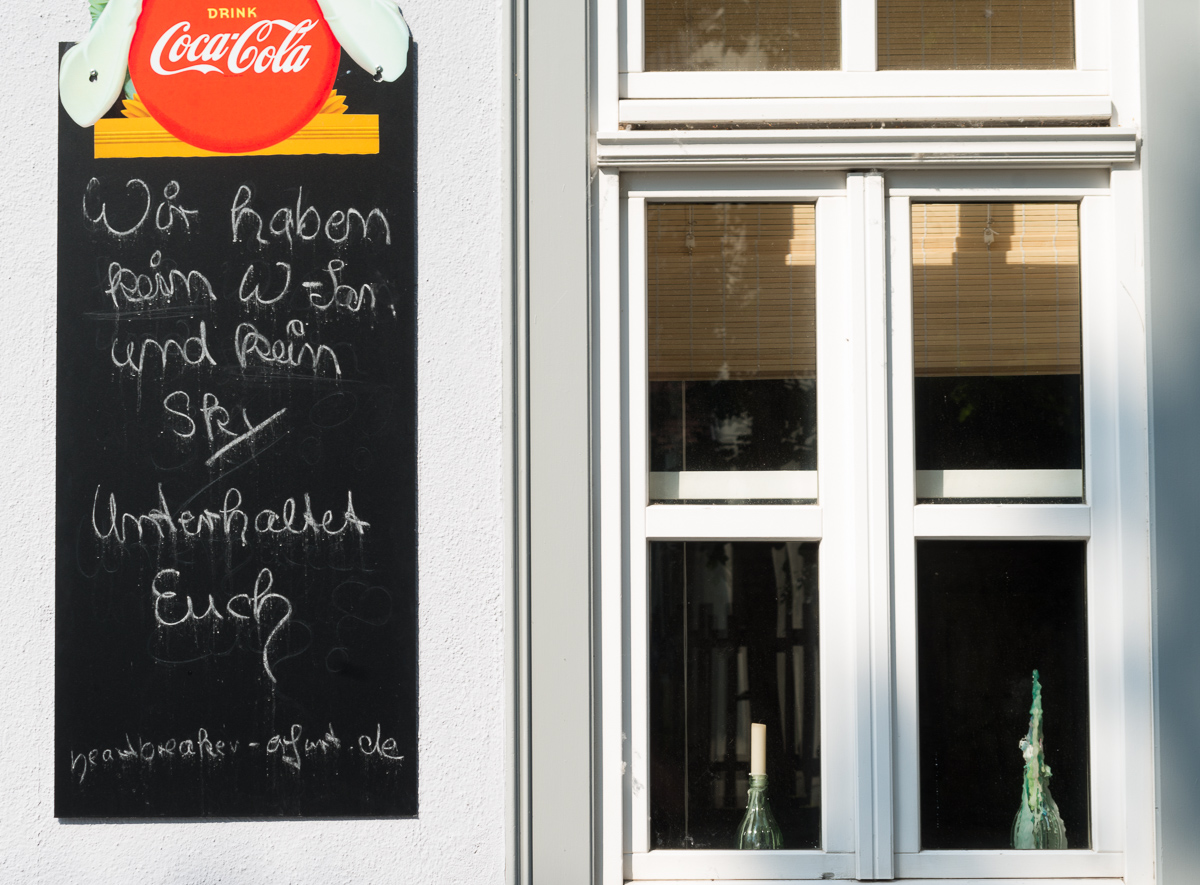 DRINK
Coca-Cola
Wir haben
kein W-Lan
und kein
Sky
Unterhaltet
Euch
heartbreaker-erfurt.de